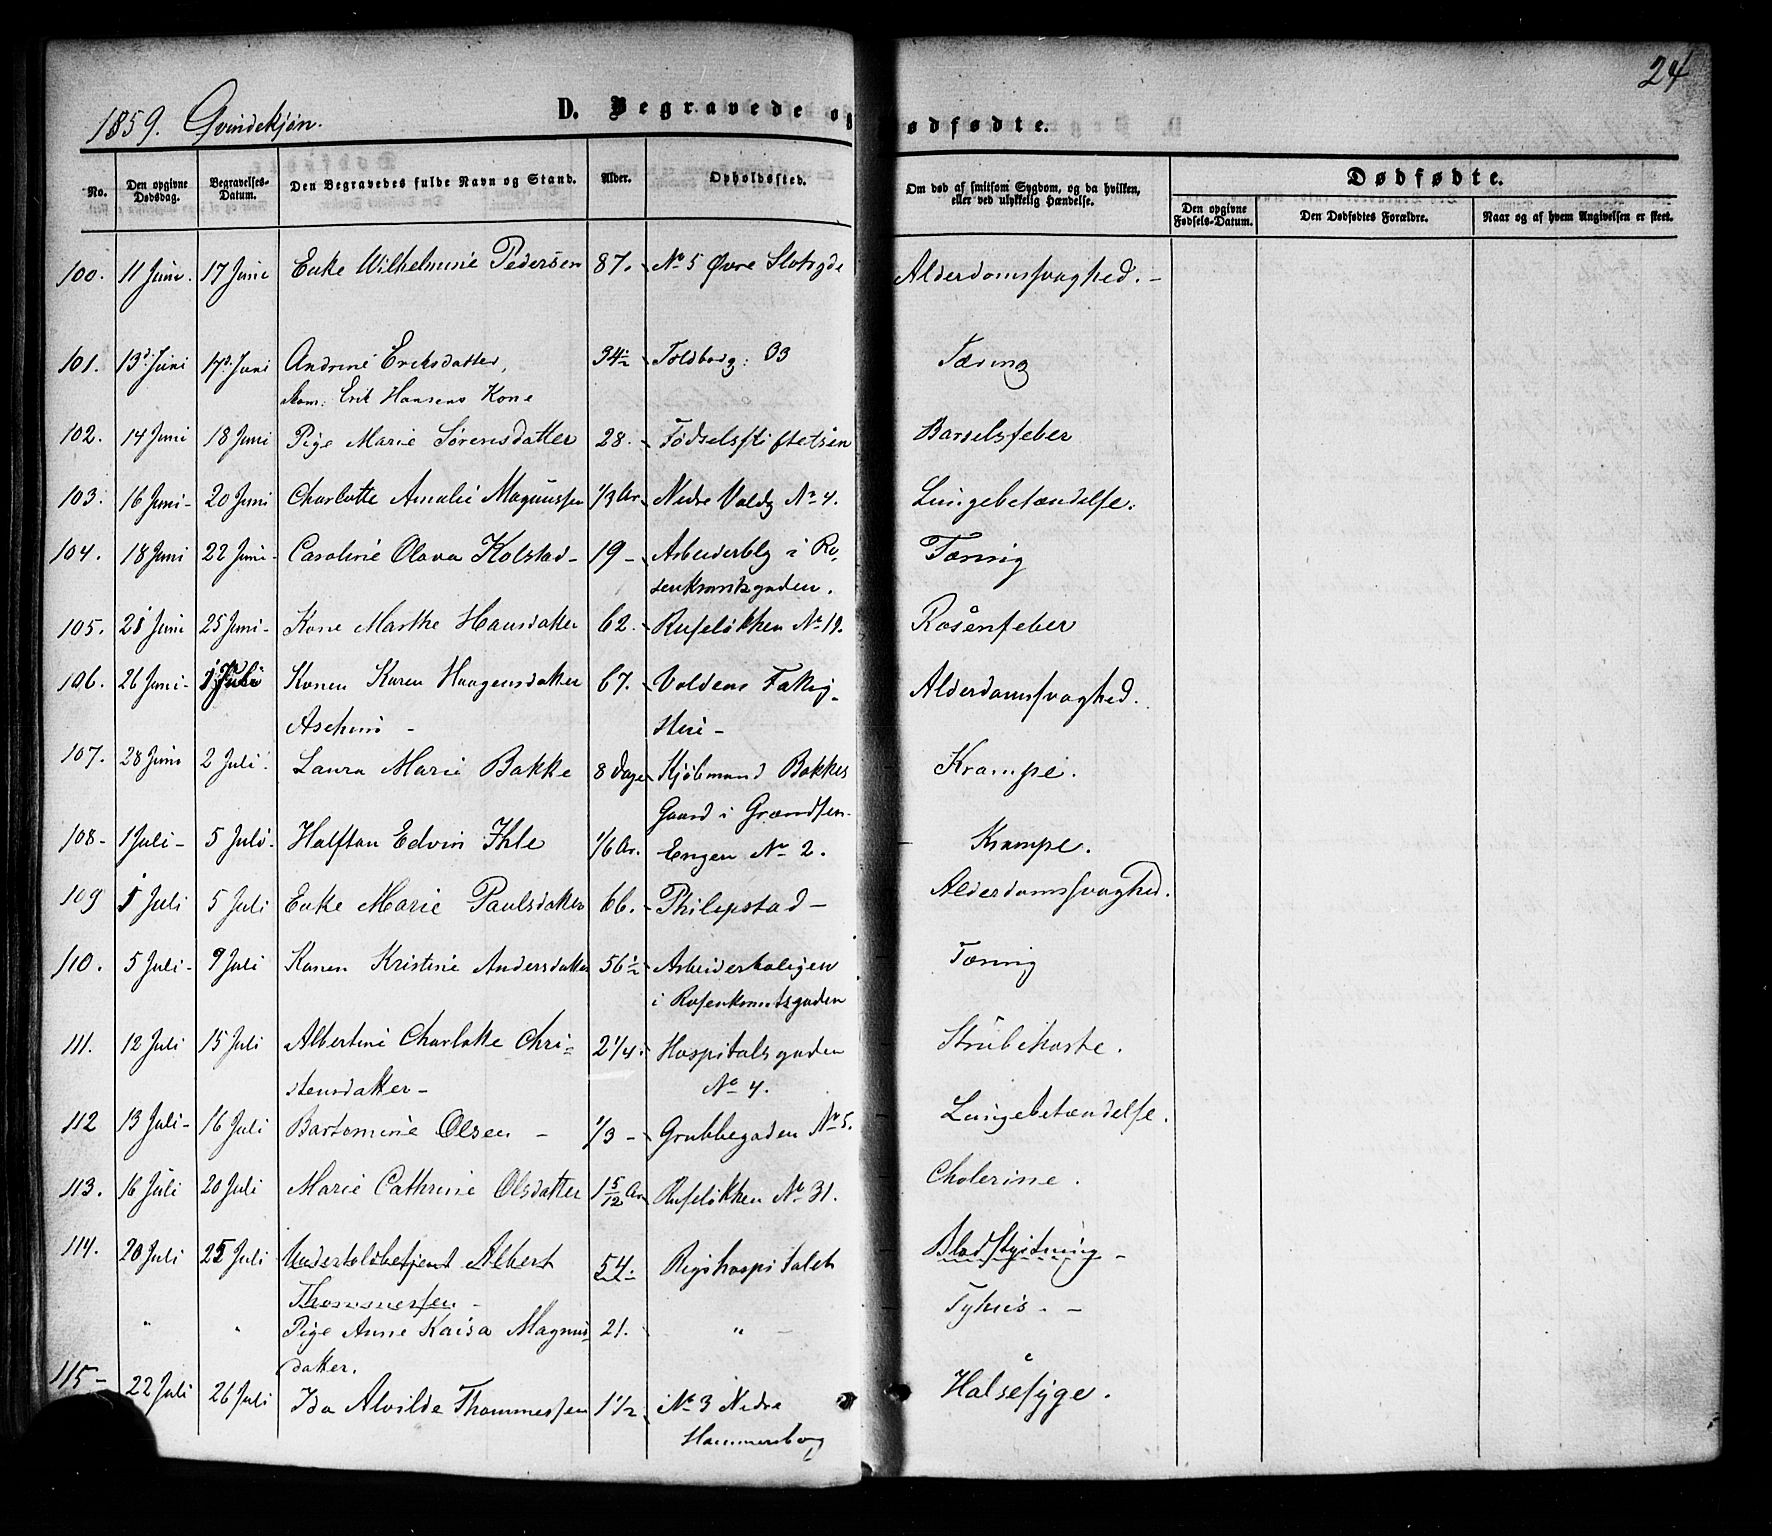 24
1859. Qvindekjøn. D. Begravede og Dødfødte.
No. | Den opgivne Dødsdag. | Begravelses-Datum. | Den Begravedes fulde Navn og Stand. | Alder. | Opholdssted. | Om død af smitsom Sygdom, og da hvilken, eller ved ulykkelig Hændelse. | Dødfødte.
Den opgivne Fødsels-Datum. | Den Dødfødtes Forældre. | Naar og af hvem Angivelsen er skeet.
100. 11 Juni. 17 Juni Enke Wilhelmine Pedersen 87. No 5 Øvre Slotsgde Alderdomssvaghed. -
101. 13d. Juni 17d. Juni Andrine Eriksdatter, 34½ Toldbodg: 33 Tæring
Erik Hansens Kone
102. 14 Juni 18 Juni Pige Marie Sørensdatter 28. Fødselsstiftelsen Barselsfeber
103. 16 Juni- 20 Juni Charlotte Amalie Magnussen 1/3 Ar. Nedre Voldg No 4. Lungebetændelse.
104. 18 Juni 22 Juni- Caroline Olava Kolstad- 19 - Arbeiderblg i Ro- Tæring
senkrantzgaden.
105. 21 Juni 25 Juni- Kone Marthe Hansdatter 62. Ruseløkken No 19. Rosenfeber
106. 26 Juni- 1 Juli Konen Karen Haagensdatter 67. Voldens Fattig- Alderdomssvaghed.
Aschim - Huse -
107. 28 Juni 2 Juli. Laura Marie Bakke 8 Dage Kjøbmand Bakkes Krampe.
Gaard i Grændsen-
108- 1 Juli- 5 Juli. Halftan Edvin Ihle 1/6 Ar. Engen No 2. Krampe.
109 1 Juli 5 Juli Enke Marie Paulsdatter 66. Philipstad - Alderdomssvaghed.
110. 5 Juli- 9 Juli Konen Kristine Andersdatter 56½ Arbeiderboligen Tæring
i Rosenkrantsgaden
111. 12 Juli 15 Juli Albertine Charlotte Chri= 2¼. Hospitalsgaden Strubehoste.
stensdatter - No 4.
112 13 Juli- 16 Juli Bartomine Olsen - 1/3 - Grubbegaden No 5. Lungebetændelse.
113. 16 Juli 20 Juli Marie Cathrine Olsdatter 1 5/12 Ar Ruseløkken No 31. Cholerine.
114. 20 Juli 25 Juli Undertoldbetjent Albert 54. Rigshospitalet Blodstyrtning -
Thommesen -
" " Pige Anne Kaisa Magnus= 21. " - Tyfus. -
datter.
115- 22 Juli 26 Juli Ida Alvilde Thommessen 1½ No 3 Nedre Halsesyge.
Hammersborg